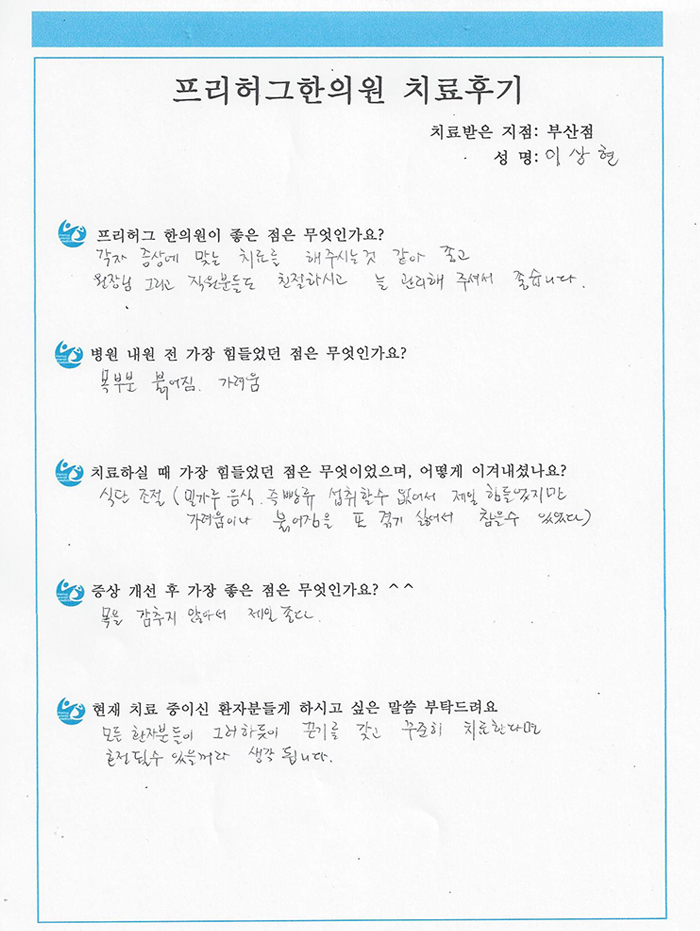 프리허그한의원 치료후기
치료받은 지점: 부산점
성 명: 이상현
프리허그 한의원이 좋은 점은 무엇인가요?
각자 증상에 맞는 치료를 해주시는것 같아 좋고
원장님 그리고 직원분들도 친절하시고 늘 관리해 주셔서 좋습니다.
병원 내원 전 가장 힘들었던 점은 무엇인가요?
목부분 붉어짐. 가려움
치료하실 때 가장 힘들었던 점은 무엇이었으며, 어떻게 이겨내셨나요?
식단 조절 (밀가루 음식. 즉 빵류 섭취할수 없어서 제일 힘들었지만
가려움이나 붉어짐을 또 겪기 싫어서 참을수 있었다)
증상 개선 후 가장 좋은 점은 무엇인가요? ^^
목을 감추지 않아서 제일 좋다.
현재 치료 중이신 환자분들게 하시고 싶은 말씀 부탁드려요
모든 환자분들이 그러하듯이 끈기를 갖고 꾸준히 치료한다면
호전될수 있을꺼라 생각 됩니다.